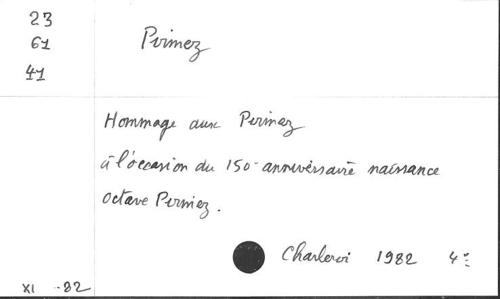 23
61
41
Pirmez
Hommage aux Pirmez
à l'occasion du 150e anniversaire naissance
Octave Pirmez.
Charleroi 1982 4°
XI -82